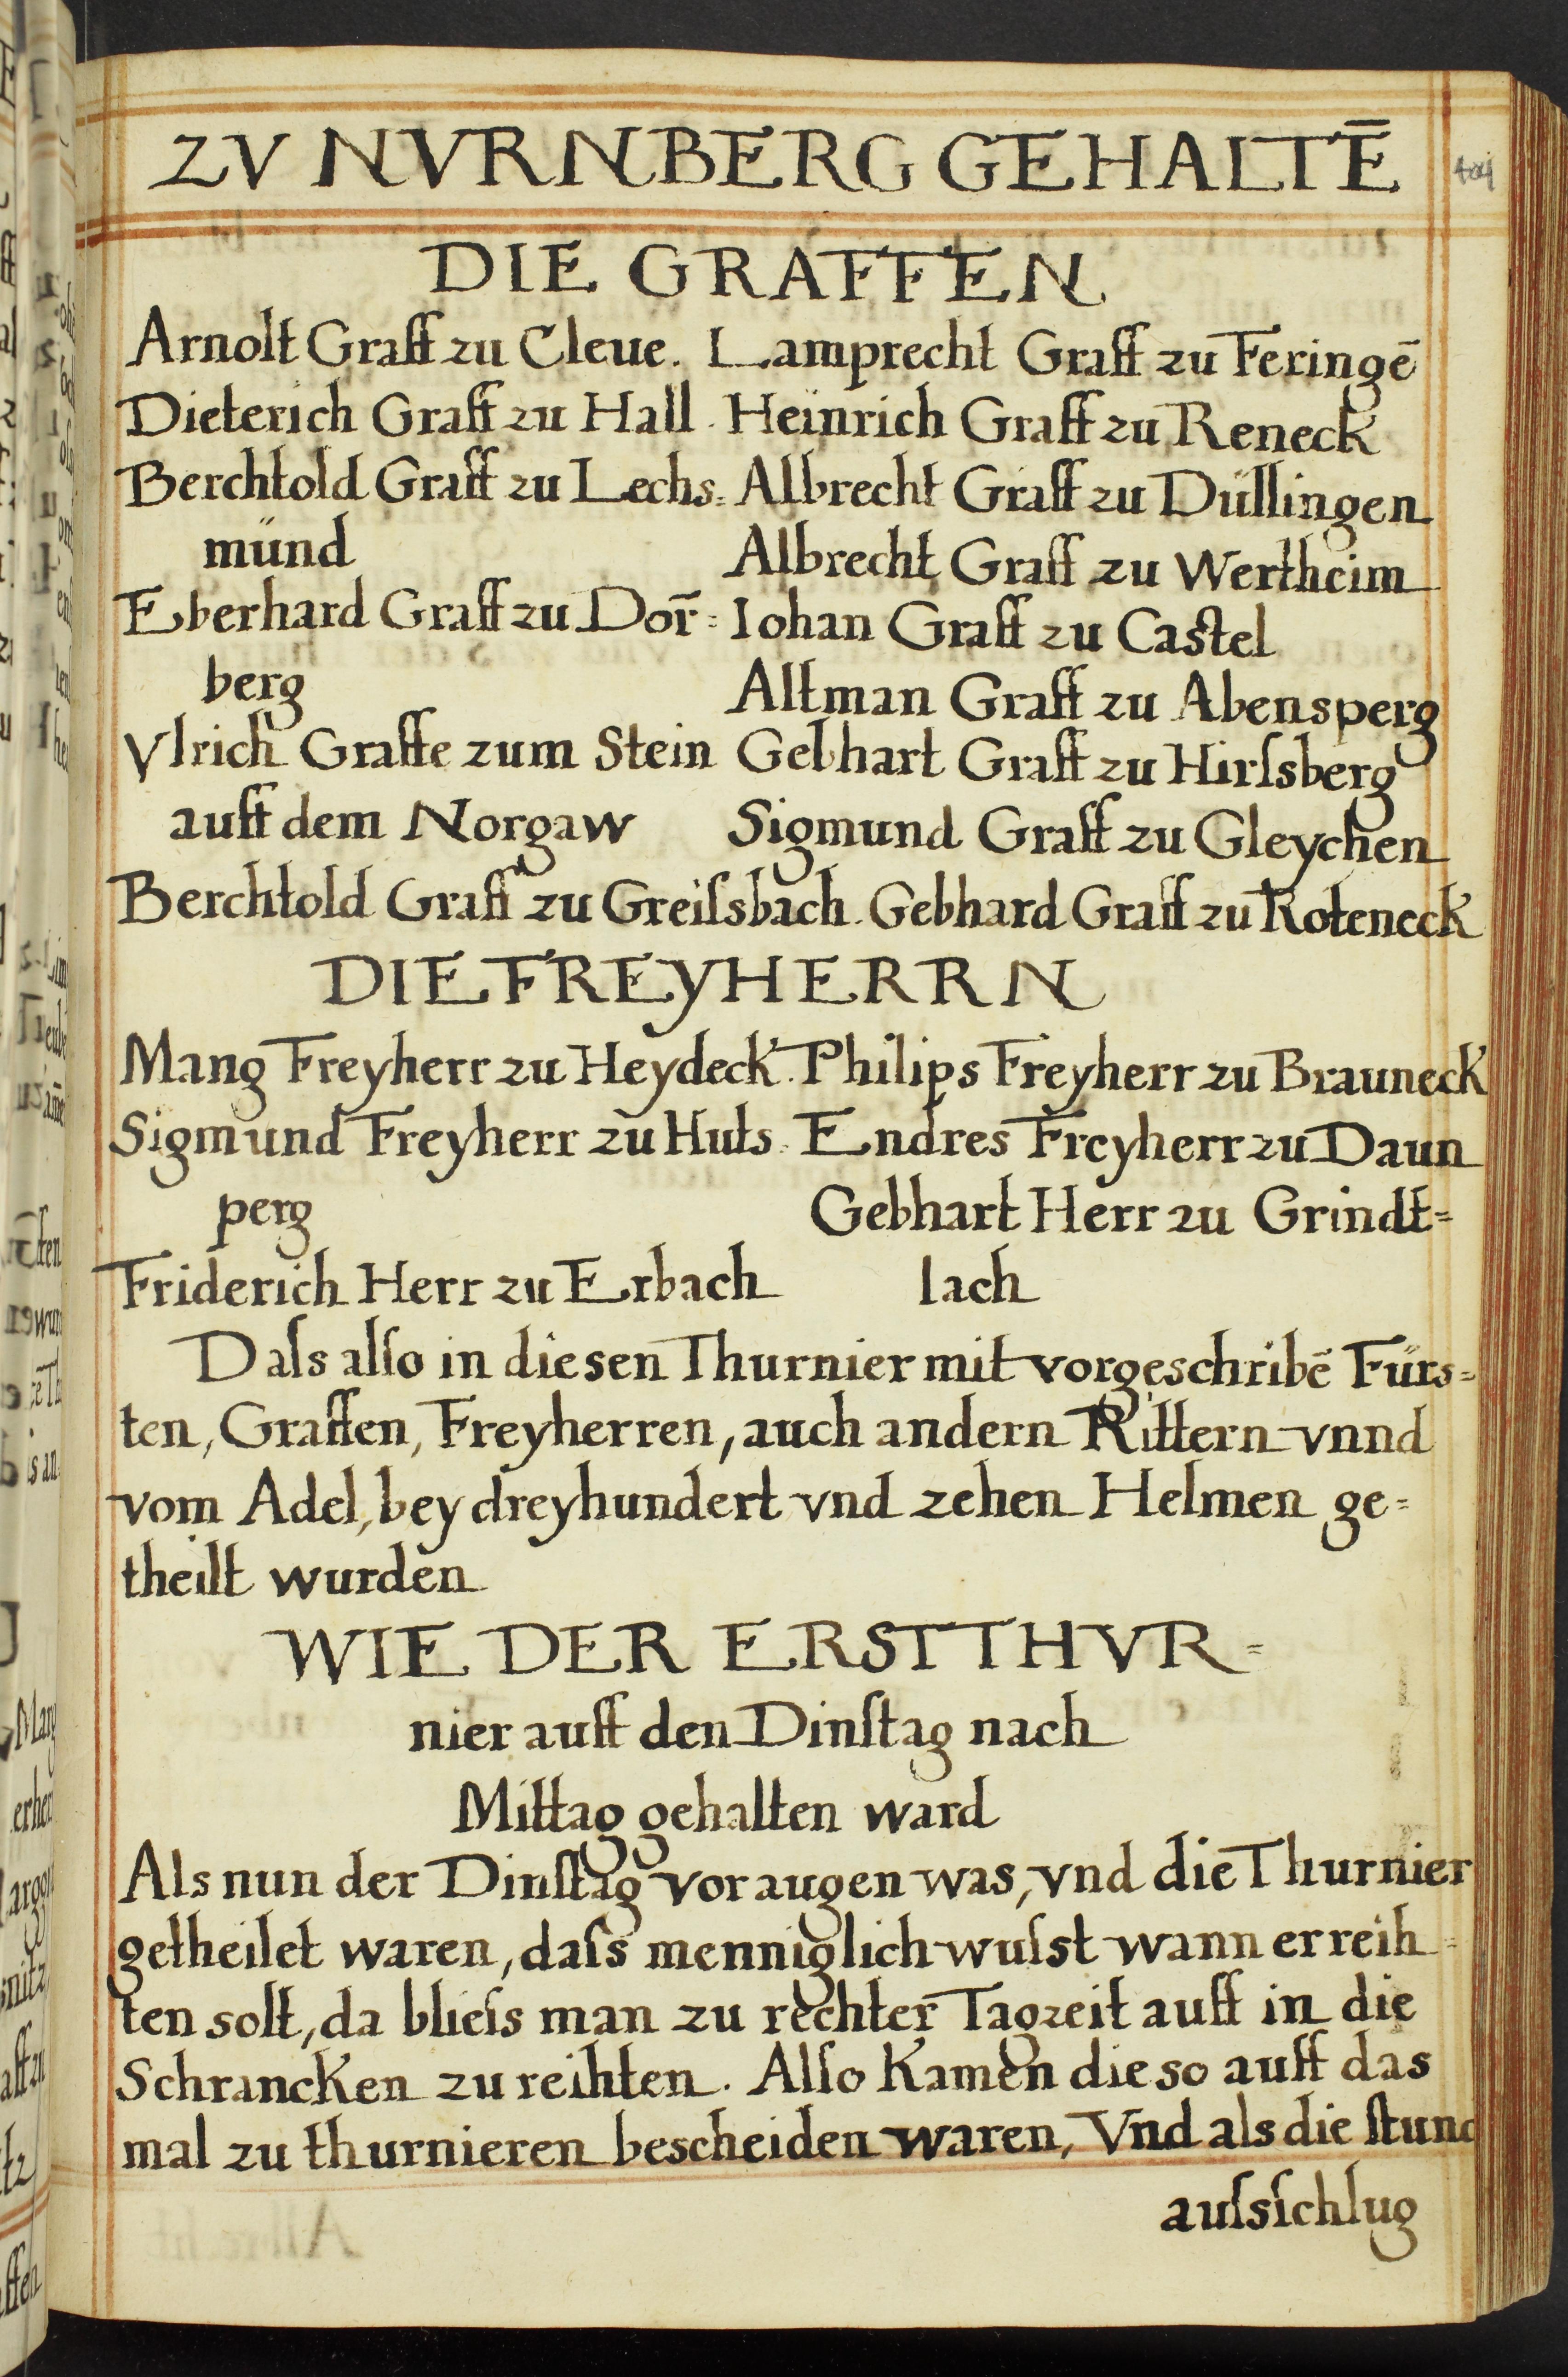 ZV NVRNBERG GEHALTĒ
DIE GRAFFEN
Arnolt Graff zu Cleue.
Dieterich Graff zu Hall.
Berchtold Graff zu Lechs=
münd
Eberhard Graff zu Dor̄=
berg
Vlrich Graffe zum Stein
auff dem Norgaw
Berchtold Graff zu Greiſsbach.
Lamprecht Graff zu Feringē
Heinrich Graff zu Reneck
Albrecht Graff zu Düllingen
Albrecht Graff zu Wertheim
Iohan Graff zu Castel
Altman Graff zu Abensperg
Gebhart Graff zu Hirſsberg
Sigmund Graff zu Gleychen
Gebhard Graff zu Roteneck
DIE FREYHERRN
Mang Freyherr zu Heydeck.
Sigmund Freyherr zu Huts=
perg
Friderich Herr zu Erbach
Philips Freyherr zu Brauneck
Endres Freyherr zu Daun
Gebhart Herr zu Grindt=
lach
Daſs alſo in diesen Thurnier mit vorgeschribē Fürs=
ten, Graffen, Freyherren, auch andern Rittern vnnd
vom Adel, bey dreyhundert vnd zehen Helmen ge=
theilt wurden
WIE DER ERST THVR=
nier auff den Dinſtag nach
Mittag gehalten ward
Als nun der Dinſtag vor augen was, vnd die Thurnier
getheilet waren, daſs menniglich wuſst wann er reih=
ten solt, da blieſs man zu rechter Tagzeit auff in die
Schrancken zu reihten. Alſo kamen die so auff das
mal zu thurnieren bescheiden waren, Vnd als die ſtund
auſsſchlug